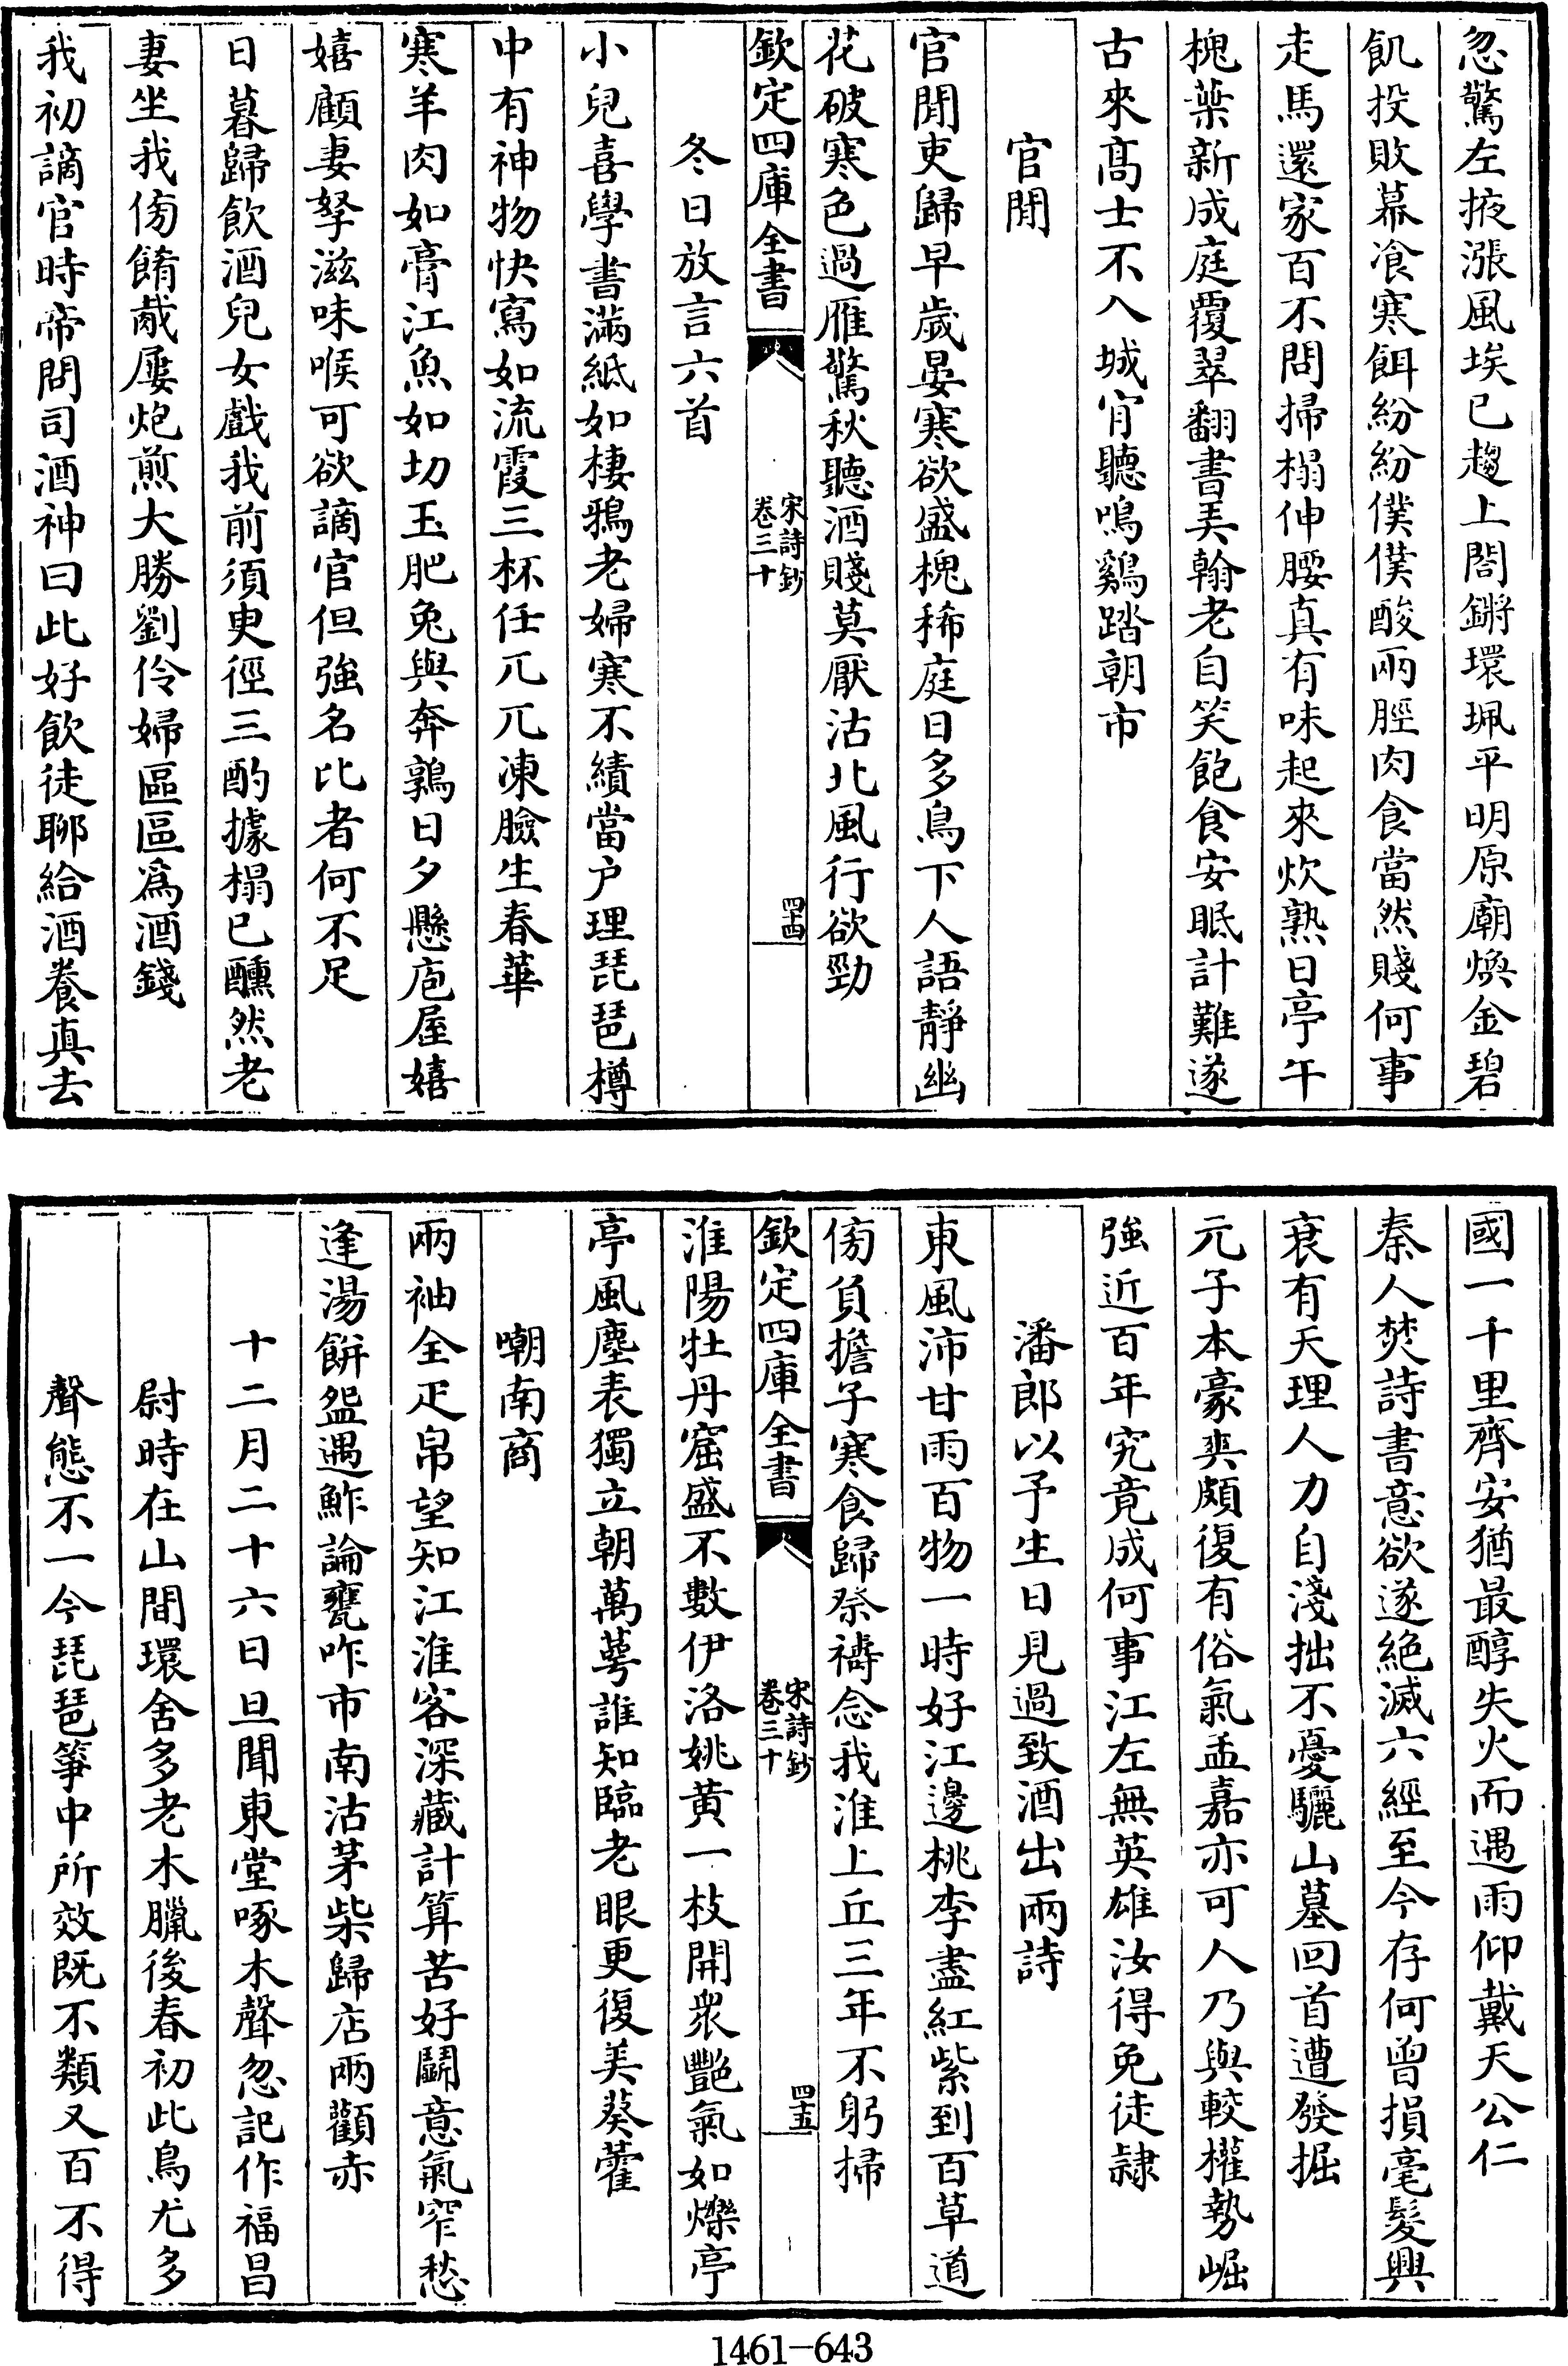 忽驚左掖漲風埃已趨上閤鏘環珮平明原廟煥金碧
飢投敗幕飡寒餌紛紛僕僕酸兩脛肉食當然賤何事
走馬還家百不問掃榻伸腰真有味起來炊熟日亭午
槐葉新成庭覆翠翻書弄翰老自笑飽食安眠計難遂
古來髙士不入城肯聽鳴鷄踏朝市
官閒
官閒吏歸早歲晏寒欲盛槐稀庭日多鳥下人語靜幽
花破寒色過雁驚秋聽酒賤莫厭沽北風行欲勁
欽定四庫全書
宋詩鈔
卷三十
四十四
冬日放言六首
小兒喜學書滿紙如棲鴉老婦寒不績當户理琵琶樽
中有神物快寫如流霞三杯任兀兀凍臉生春華
寒羊肉如膏江魚如切玉肥兔與奔鶉日夕懸庖屋嬉
嬉顧妻孥滋味喉可欲謫官但強名比者何不足
日暮歸飲酒兒女戲我前須臾徑三酌據榻已醺然老
妻坐我傍餚胾屢炮煎大勝劉伶婦區區為酒錢
我初謫官時帝問司酒神曰此好飲徒聊給酒養真去
國一千里齊安猶最醇失火而遇雨仰戴天公仁
秦人焚詩書意欲遂絶滅六經至今存何曾損毫髮興
衰有天理人力自淺拙不憂驪山墓回首遭發掘
元子本豪爽頗復有俗氣孟嘉亦可人乃與較權勢崛
強近百年究竟成何事江左無英雄汝得免徒隸
潘郎以予生日見過致酒出兩詩
東風沛甘雨百物一時好江邊桃李盡紅紫到百草道
傍負擔子寒食歸祭禱念我淮上丘三年不躬掃
欽定四庫全書
宋詩鈔
卷三十
四十五
淮陽牡丹窟盛不數伊洛姚黄一枝開衆豔氣如爍亭
亭風塵表獨立朝萬萼誰知臨老眼更復美葵藿
嘲南商
兩袖全疋帛望知江淮客深藏計算苦好鬭意氣窄愁
逢湯餅盌遇鮓論甕咋市南沽茅柴歸店兩顴赤
十二月二十六日旦聞東堂啄木聲忽記作福昌
尉時在山間環舍多老木臘後春初此鳥尤多
聲態不一今琵琶箏中所效既不類又百不得
1461-643